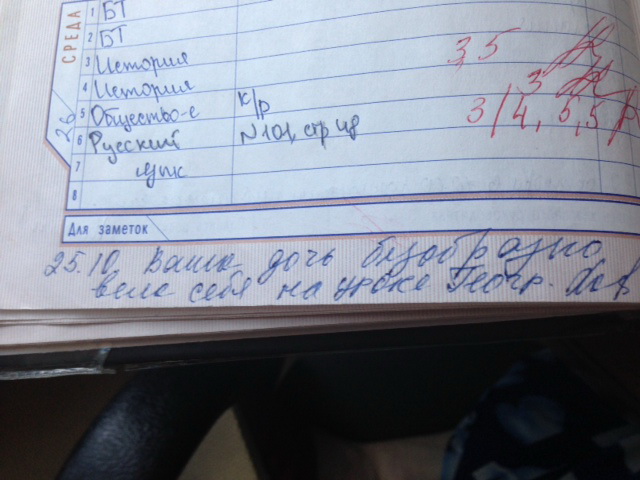 СРЕДА
26
1 БТ
2 БТ
3 История 3,5
4 История 3
5 Общество-е к/р 3/4, 5,5
6 Русский N 101, стр
7 язык
8
Для заметок
25.10 Ваша дочь безобразно
вела себя на уроке Геогр.